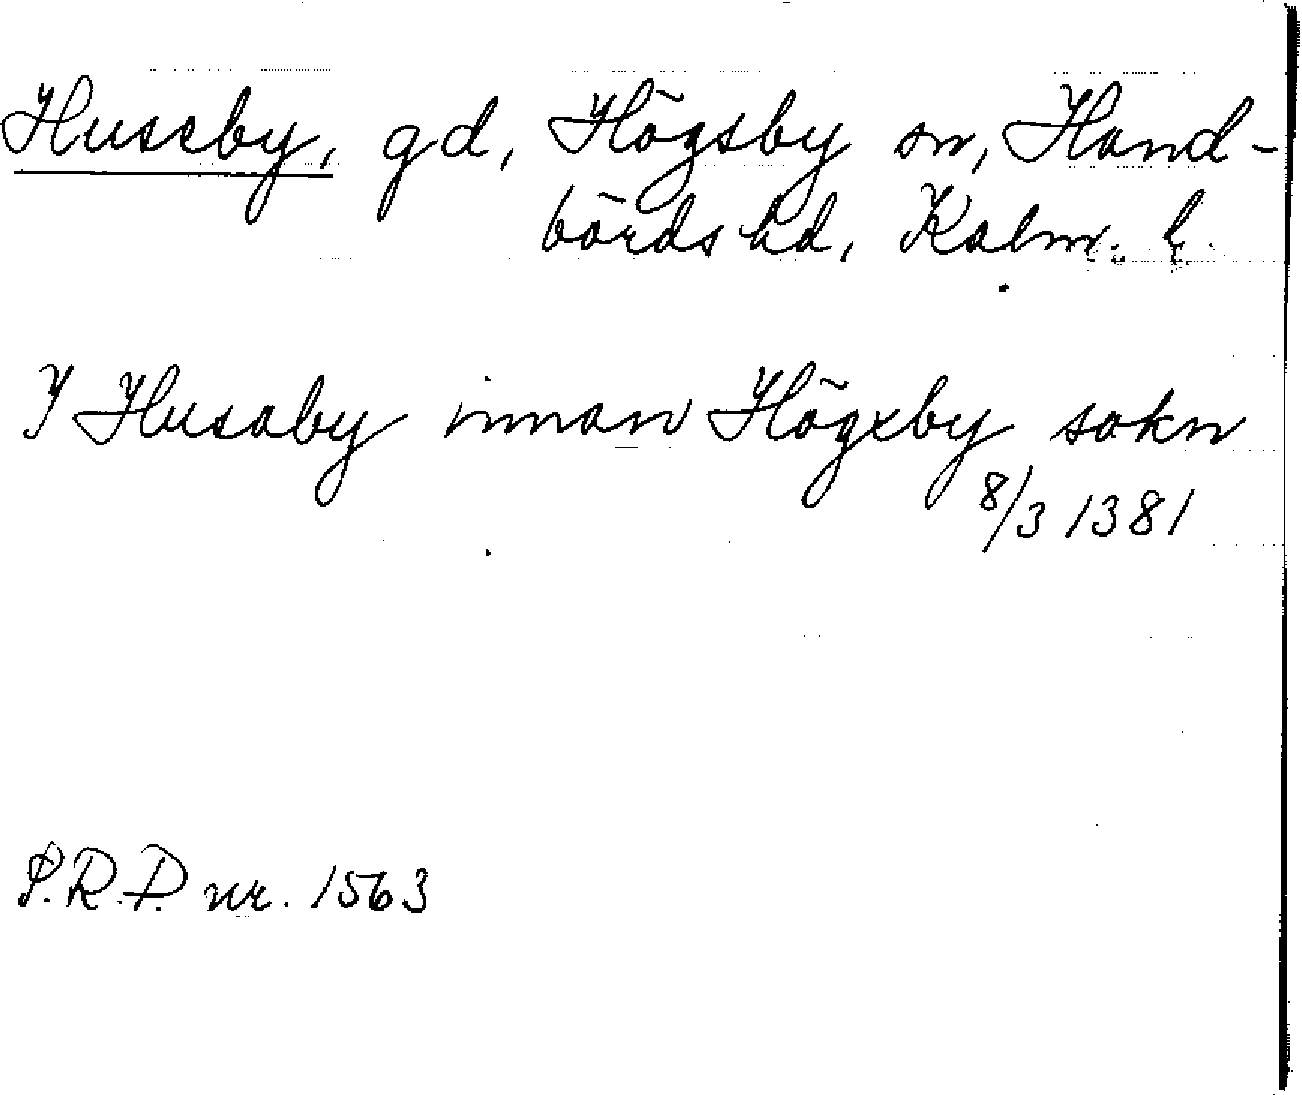 Huseby, gd, Högsby sn, Hand-
börds hd, Kalm. l.
J Husaby innan Högxby sokn
8/3 1381
S.R.P. nr. 1563